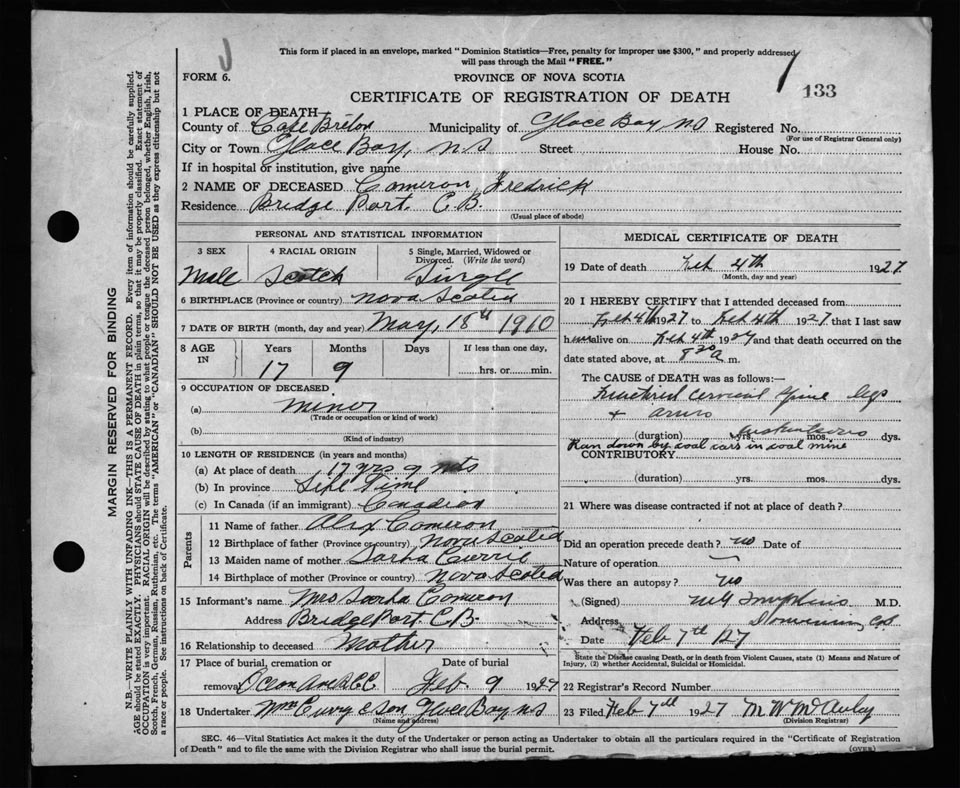 This form if placed in an envelope, marked "Dominion Statistics—Free, penalty for improper use $300," and properly addressed
will pass through the Mail "FREE."
FORM 6.
PROVINCE OF NOVA SCOTIA
133
CERTIFICATE OF REGISTRATION OF DEATH
1 PLACE OF DEATH—
County of Cape Breton Municipality of Glace Bay NS Registered No.
(For use of Registrar General only)
City or Town Glace Bay, NS Street House No.
If in hospital or institution, give name
2 NAME OF DECEASED Cameron, Fredrick
Residence Bridge Port. C.B.
(Usual place of abode)
PERSONAL AND STATISTICAL INFORMATION
3 SEX 4 RACIAL ORIGIN 5 Single, Married, Widowed or
Divorced. (Write the word)
Male Scotch Single
6 BIRTHPLACE (Province or country) Nova Scotia
7 DATE OF BIRTH (month, day and year) May, 18th 1910
8 AGE IN Years Months Days If less than one day,
17 9 hrs. or min.
9 OCCUPATION OF DECEASED
(a) miner
(Trade or occupation or kind of work)
(b)
(Kind of industry)
10 LENGTH OF RESIDENCE (in years and months)
(a) At place of death 17 yrs 9 mts
(b) In province Life Time
(c) In Canada (if an immigrant) Canadian
Parents
11 Name of father Alex Cameron
12 Birthplace of father (Province or country) Nova Scotia
13 Maiden name of mother Sarha Currie
14 Birthplace of mother (Province or country) Nova Scotia
15 Informant's name Mrs Sarha Cameron
Address Bridge Port. C.B.
16 Relationship to deceased Mother
17 Place of burial, cremation or Date of burial
removal Feb. 9 1927
18 Undertaker Wm Curry & Son Glace Bay NS
(Name and address)
MEDICAL CERTIFICATE OF DEATH
19 Date of death Feb 4th 1927
(Month, day and year)
20 I HEREBY CERTIFY that I attended deceased from
Feb 4th 1927 to Feb 4th 1927 that I last saw
him alive on Feb 4th 1927 and that death occurred on the
date stated above, at 8 30 a m.
The CAUSE OF DEATH was as follows:—
Fractured cervical spine legs
+ arms
(duration) yrs. mos. dys.
Ran down by coal cars in coal mine
CONTRIBUTORY
(duration) yrs. mos. dys.
21 Where was disease contracted if not at place of death?
Did an operation precede death? no Date of
Nature of operation
Was there an autopsy? no
(Signed) M.D.
Address Dominion, C.B.
Date Feb 7th 27
State the Disease causing Death, or in death from Violent Causes, state (1) Means and Nature of
Injury, (2) whether Accidental, Suicidal or Homicidal.
22 Registrar's Record Number
23 Filed Feb 7th 1927 M W McAulay
(Division Registrar)
SEC. 46—Vital Statistics Act makes it the duty of the Undertaker or person acting as Undertaker to obtain all the particulars required in the "Certificate of Registration
of Death" and to file the same with the Division Registrar who shall issue the burial permit.
(OVER)
MARGIN RESERVED FOR BINDING
N.B.—WRITE PLAINLY WITH UNFADING INK—THIS IS A PERMANENT RECORD. Every item of information should be carefully supplied.
AGE should be stated EXACTLY. PHYSICIANS should STATE CAUSE OF DEATH in plain terms, so that it may be properly classified. Exact statement of
OCCUPATION is very important. RACIAL ORIGIN will be described by stating to what people or tongue the deceased person belonged, whether English, Irish,
Scotch, French, German, Russian, Ruthenian, etc. The terms "AMERICAN" or "CANADIAN" SHOULD NOT BE USED as they express citizenship but not
a race or people. See instructions on back of Certificate.